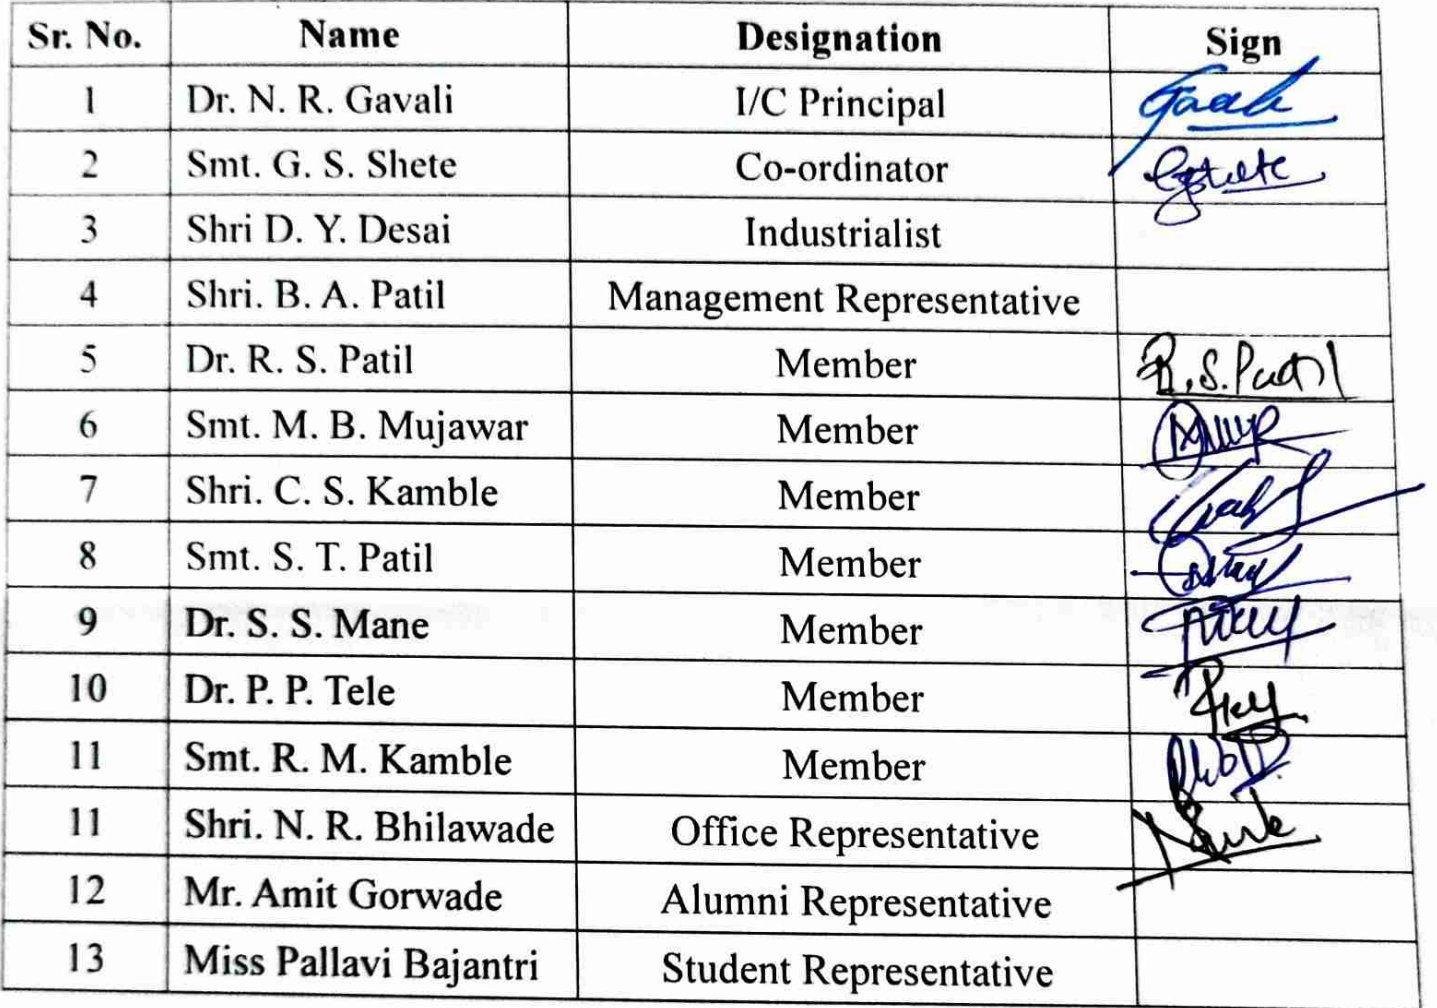 Sr. No. Name Designation Sign
1 Dr. N. R. Gavali I/C Principal
2 Smt. G. S. Shete Co-ordinator
3 Shri D. Y. Desai Industrialist
4 Shri. B. A. Patil Management Representative
5 Dr. R. S. Patil Member R.S.Patil
6 Smt. M. B. Mujawar Member
7 Shri. C. S. Kamble Member
8 Smt. S. T. Patil Member
9 Dr. S. S. Mane Member
10 Dr. P. P. Tele Member
11 Smt. R. M. Kamble Member
11 Shri. N. R. Bhilawade Office Representative
12 Mr. Amit Gorwade Alumni Representative
13 Miss Pallavi Bajantri Student Representative